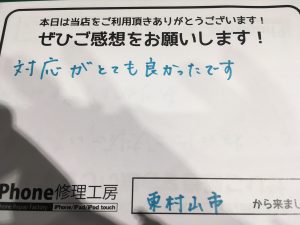 本日は当店をご利用頂きありがとうございます!
ぜひご感想をお願いします!
対応がとても良かったです
iPhone修理工房
iPhone Repair Factory iPhone/iPad/iPod touch
東村山市 から来まし